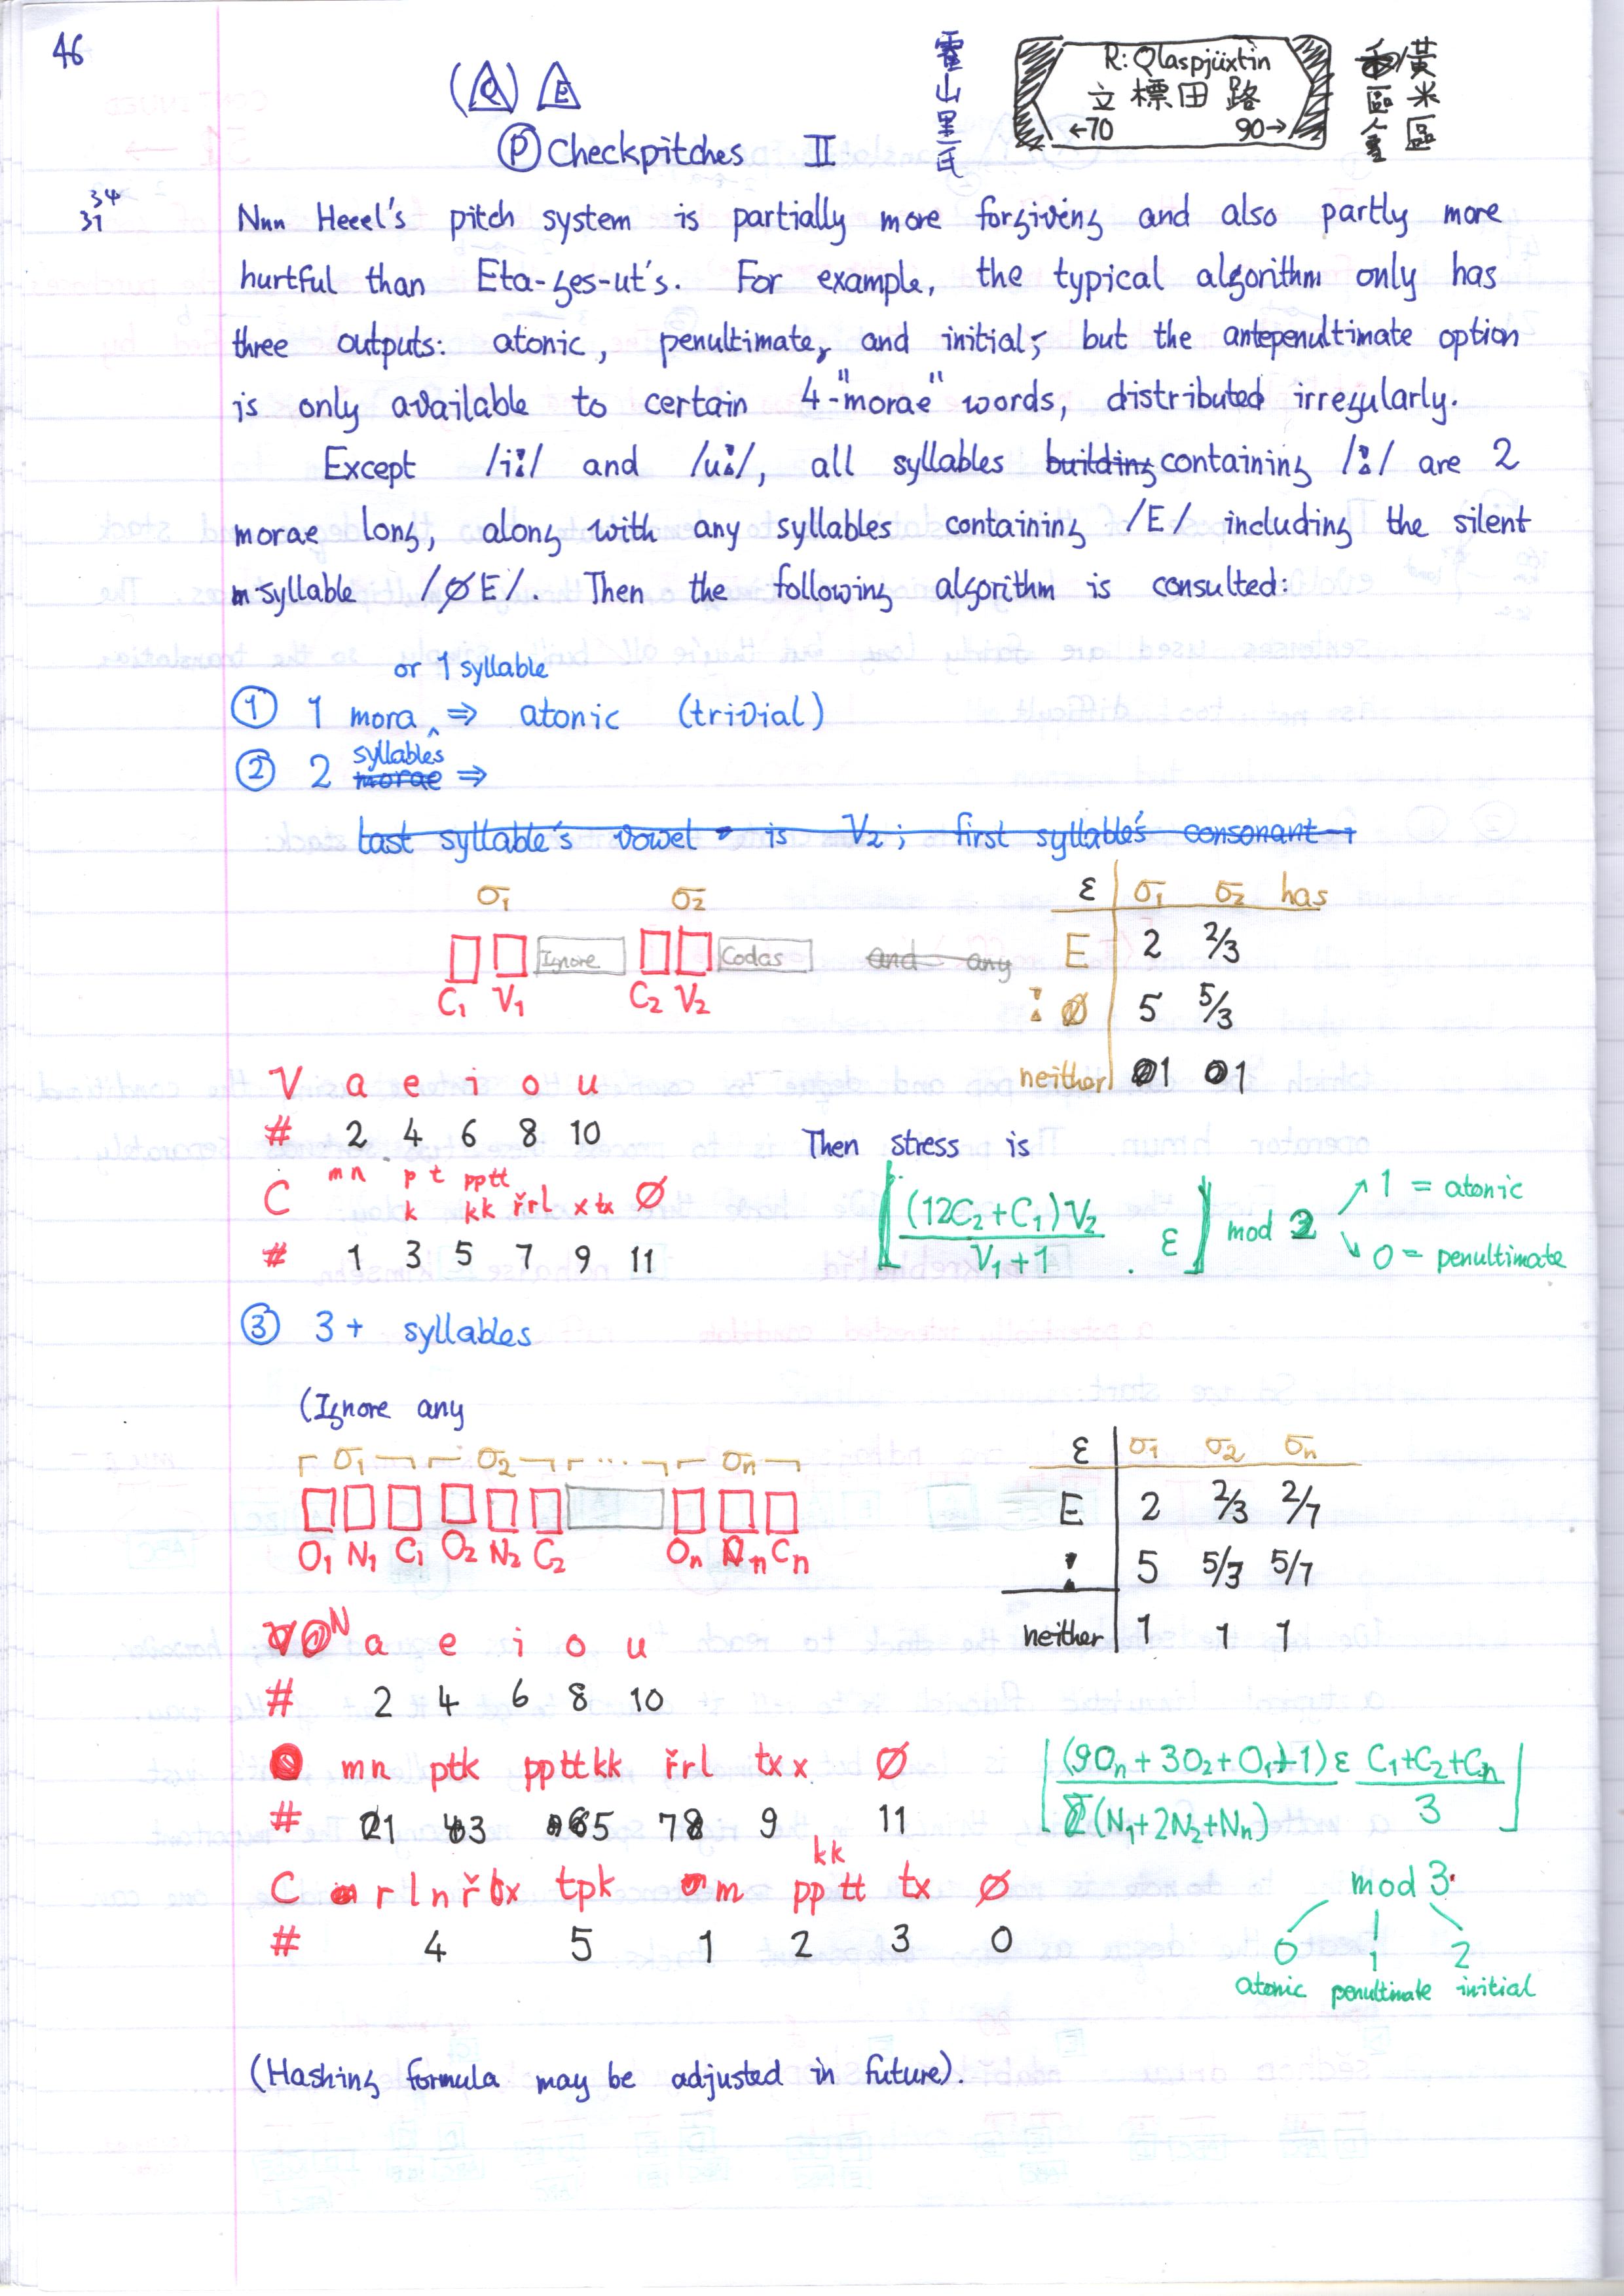 46
(Q) E
Ⓟ Checkpitches II
霍山里氏
R: Qlaspjüxtin
立標田路
←70 90→
黃米區
34
31
Nnn Heeel's pitch system is partially more forgiving and also partly more
hurtful than Eta-ges-ut's. For example, the typical algorithm only has
three outputs: atonic, penultimate, and initial; but the antepenultimate option
is only available to certain 4-"morae" words, distributed irregularly.
Except /iː/ and /uː/, all syllables building containing /ː/ are 2
morae long, along with any syllables containing /E/ including the silent
syllable /∅E/. Then the following algorithm is consulted:
or 1 syllable
① 1 mora ⇒ atonic (trivial)
② 2 syllables morae ⇒
Last syllable's vowel is V₂; first syllable's consonant
σ₁ σ₂
Ignore Codas and any
C₁ V₁ C₂ V₂
ε σ₁ σ₂ has
E 2 2/3
ː 5 5/3
neither 1 1
V a e i o u
# 2 4 6 8 10
C mn p t k pp tt kk řrl x tx ∅
# 1 3 5 7 9 11
Then stress is
⌊(12C₂+C₁)V₂ / V₁+1 · ε⌋ mod 2
1 = atonic
0 = penultimate
③ 3+ syllables
(Ignore any
σ₁ σ₂ ... σₙ
O₁ N₁ C₁ O₂ N₂ C₂ Oₙ Nₙ Cₙ
ε σ₁ σ₂ σₙ
E 2 2/3 2/7
ː 5 5/3 5/7
neither 1 1 1
N a e i o u
# 2 4 6 8 10
O mn ptk ppttkk řrl txx ∅
# 1 3 5 7 9 11
C r l n ř x tpk m pp tt kk tx ∅
# 4 5 1 2 3 0
⌊(9Oₙ + 3O₂ + O₁ + 1) ε / (N₁+2N₂+Nₙ) C₁+C₂+Cₙ / 3⌋
mod 3
0 1 2
atonic penultimate initial
(Hashing formula may be adjusted in future).